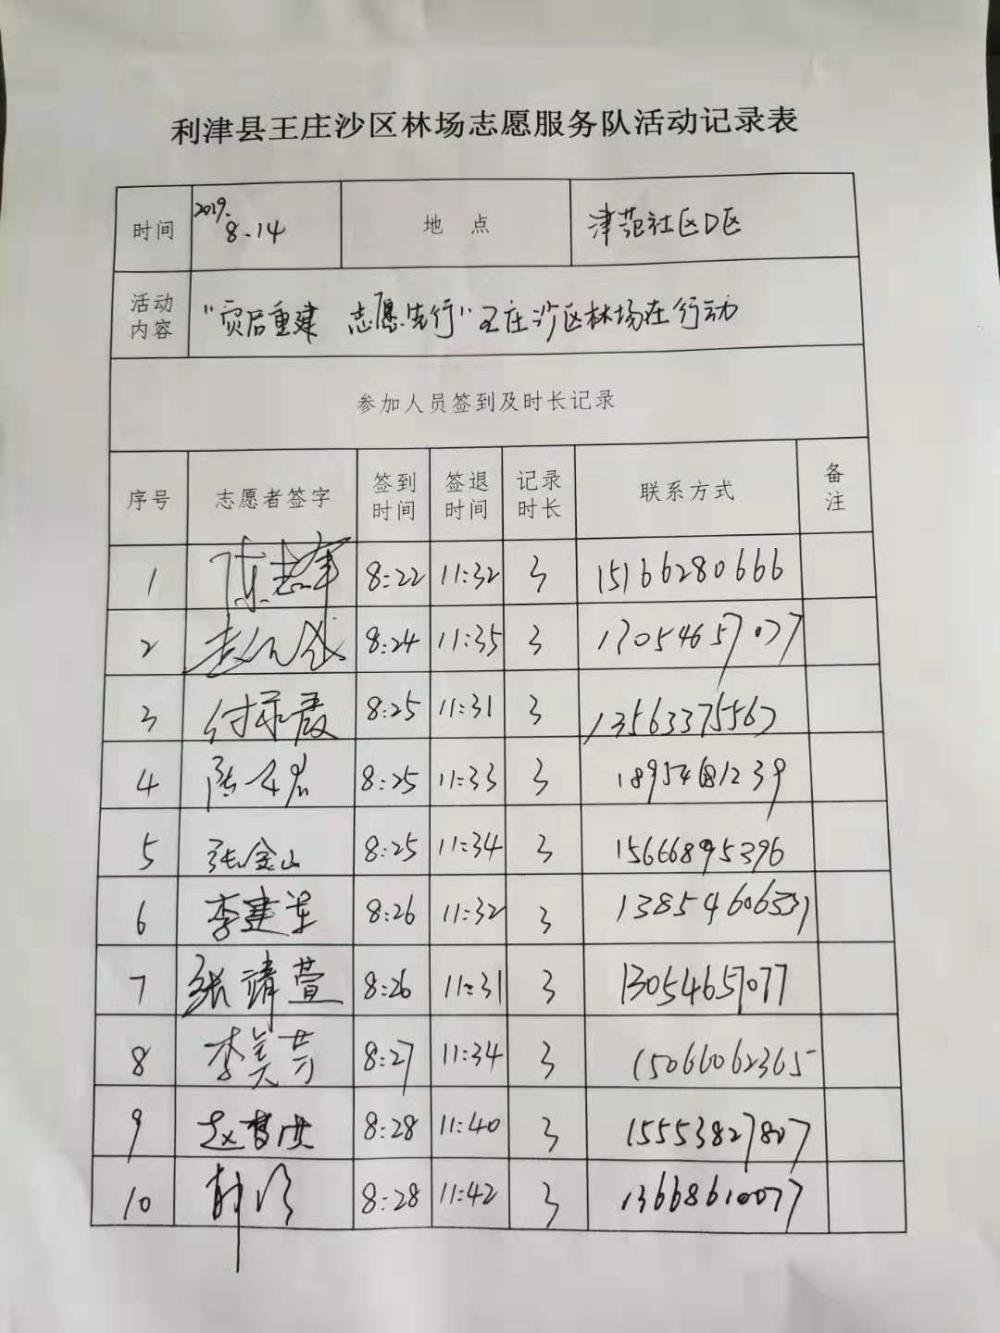 利津县王庄沙区林场志愿服务队活动记录表
时间 2019. 8.14 地 点 津苑社区D区
活动内容 "灾后重建 志愿先行"王庄沙区林场在行动
参加人员签到及时长记录
序号 志愿者签字 签到时间 签退时间 记录时长 联系方式 备注
1 8:22 11:32 3 15166280666
2 8:24 11:35 3 17054657077
3 8:25 11:31 3 13563375567
4 8:25 11:33 3
5 张金山 8:25 11:34 3 15666895396
6 李建军 8:26 11:32 3
7 张靖萱 8:26 11:31 3 13054657077
8 李美芳 8:27 11:34 3 15066062365
9 8:28 11:40 3 15553827807
10 8:28 11:42 3 13668610077